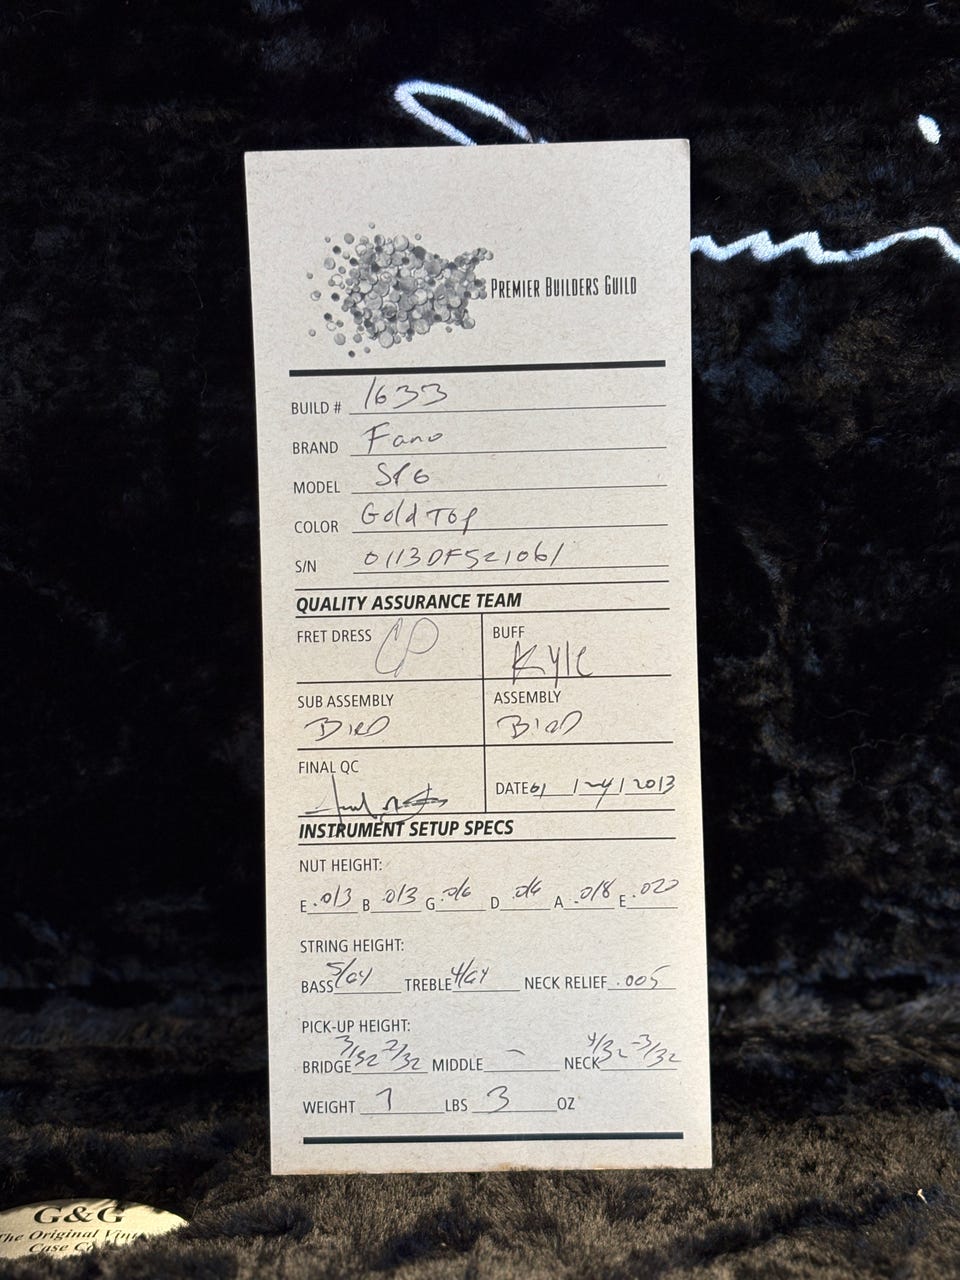 PREMIER BUILDERS GUILD
BUILD # 1633
BRAND Fano
MODEL SP6
COLOR Gold Top
S/N 0113DFS21061
QUALITY ASSURANCE TEAM
FRET DRESS CP BUFF Kyle
SUB ASSEMBLY ASSEMBLY
FINAL QC DATE 01/24/2013
INSTRUMENT SETUP SPECS
NUT HEIGHT:
E .013 B .013 G .016 D .016 A .018 E .020
STRING HEIGHT:
BASS 5/64 TREBLE 4/64 NECK RELIEF .005
PICK-UP HEIGHT:
BRIDGE 3/32 2/32 MIDDLE – NECK 4/32 - 3/32
WEIGHT 7 LBS 3 OZ
G&G
The Original
Case